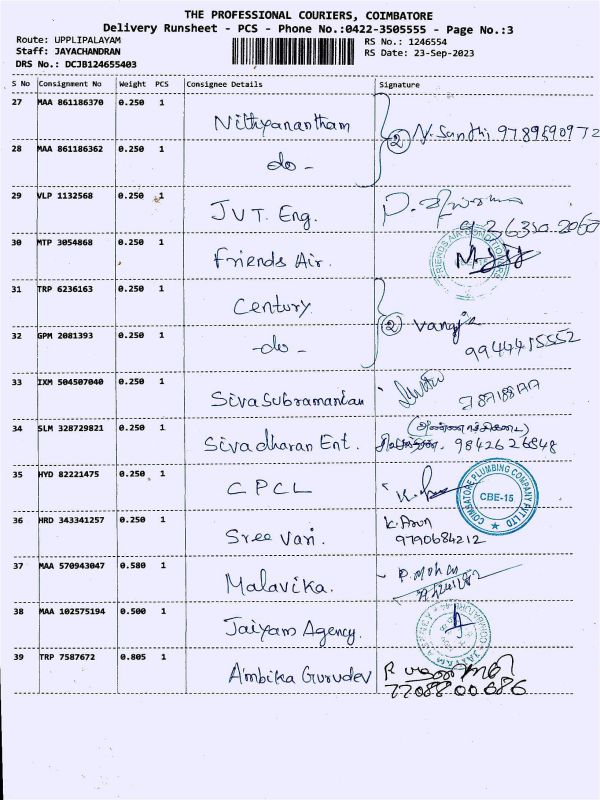 THE PROFESSIONAL COURIERS, COIMBATORE
Delivery Runsheet - PCS - Phone No.:0422-3505555 - Page No.:3
Route: UPPLIPALAYAM RS No.: 1246554
Staff: JAYACHANDRAN RS Date: 23-Sep-2023
DRS No.: DCJB124655403
S No Consignment No Weight PCS Consignee Details Signature
27 MAA 861186370 0.250 1 Nithyanantham ② N. Santhi 9789590972
28 MAA 861186362 0.250 1 -do-
29 VLP 1132568 0.250 1 JVT. Eng.
30 MTP 3054868 0.250 1 Friends Air. FRIENDS AIR CONDITIONERS
31 TRP 6236163 0.250 1 Century ②
32 GPM 2081393 0.250 1 -do- 9944415552
33 IXM 504507040 0.250 1 Sivasubramanian
34 SLM 328729821 0.250 1 Sivadharan Ent. 9842626848
35 HYD 82221475 0.250 1 CPCL COIMBATORE PLUMBING COMPANY PVT LTD CBE-15
36 HRD 343341257 0.250 1 Sree Vari. K. Arun 9790684212
37 MAA 570943047 0.580 1 Malavika. P. Mohan
38 MAA 102575194 0.500 1 Jaiyam Agency.
39 TRP 7587672 0.805 1 Ambika Gurudev 7708800686